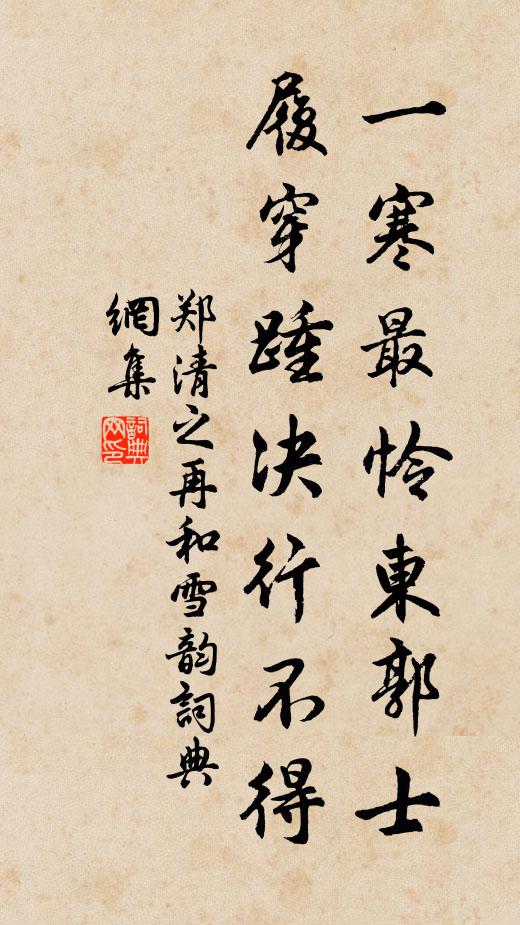 一寒最怜東郭士
履穿踵決行不得
郑清之再和雪韵詞典
網集
詞典网印